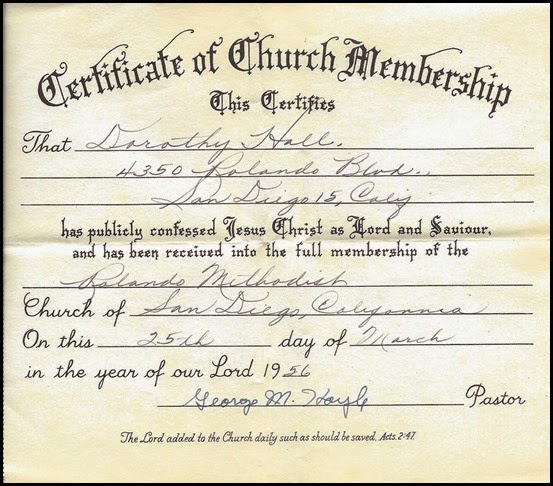 Certificate of Church Membership
This Certifies
That Dorothy Hall.
4350 Rolando Blvd.,
San Diego 15, Calif
has publicly confessed Jesus Christ as Lord and Saviour,
and has been received into the full membership of the
Rolando Methodist
Church of San Diego, California
On this 25th day of March
in the year of our Lord 1956
George M. Hoyle Pastor
The Lord added to the Church daily such as should be saved. Acts. 2:47.